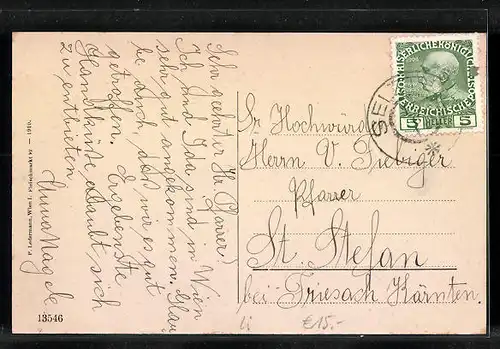 Sehr geehrter Hr Pfarrer!
Ich und Ida sind in Wien
sehr gut angekommen. Glau-
be auch, daß wir es gut
getroffen. Ergebenste
Handküße erlaubt sich
zu entbieten
Anna
P. Ledermann, Wien I., Fleischmarkt — 1910.
13546
Sr Hochwürd
Herrn V.
Pfarrer
St. Stefan
bei Friesach Kärnten.
KAISERLICHE KÖNIGLICHE
ÖSTERREICHISCHE POST
5 HELLER 5
€15.-